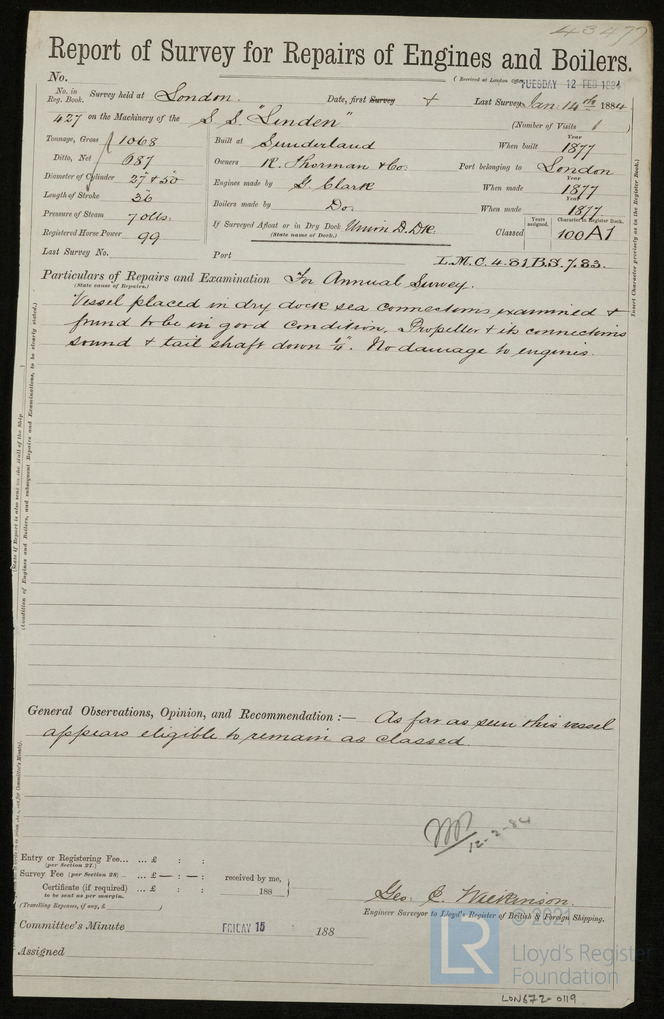 43477
Report of Survey for Repairs of Engines and Boilers.
No.
(Received at London Office TUESDAY 12 FEB 1884
No. in Reg. Book. Survey held at London. Date, first Survey + Last Survey Jan. 14th 1884
427 on the Machinery of the S.S. "Linden" (Number of Visits 1)
Tonnage, Gross 1068 Built at Sunderland When built Year 1877
Ditto, Net 687 Owners R. Thorman & Co. Port belonging to London
Diameter of Cylinder 27" & 50" Engines made by G. Clark When made Year 1877
Length of Stroke 36" Boilers made by Do. When made Year 1877
Pressure of Steam 70 lbs. If Surveyed Afloat or in Dry Dock Union D. Dk Classed Years assigned. Character in Register Book. 100A1
(State name of Dock.)
Registered Horse Power 99
Last Survey No. Port L.M.C. 4.81 B.S. 7.83.
Particulars of Repairs and Examination For Annual Survey.
(State cause of Repairs.)
Vessel placed in dry dock sea connections examined &
found to be in good condition. Propeller & its connections
sound & tail shaft down ¼". No damage to engines.
Insert Character precisely as in the Register Book.)
(State if Report is also sent on the Hull of the Ship
(Condition of Engines and Boilers, and subsequent Repairs and Examinations, to be clearly stated.)
General Observations, Opinion, and Recommendation :— As far as seen this vessel
appears eligible to remain as classed.
12-2-84
for Committee's Minute).
Entry or Registering Fee... ... £ : :
(per Section 27.)
Survey Fee (per Section 28) ... ... £ — : — : received by me,
Certificate (if required) ... £ : : 188
to be sent as per margin.
(Travelling Expenses, if any, £ )
Geo. C. Wilkinson.
Engineer Surveyor to Lloyd's Register of British & Foreign Shipping.
Committee's Minute FRIDAY 15 188
Assigned
LR © 2021
Lloyd's Register
Foundation
LON672-0119